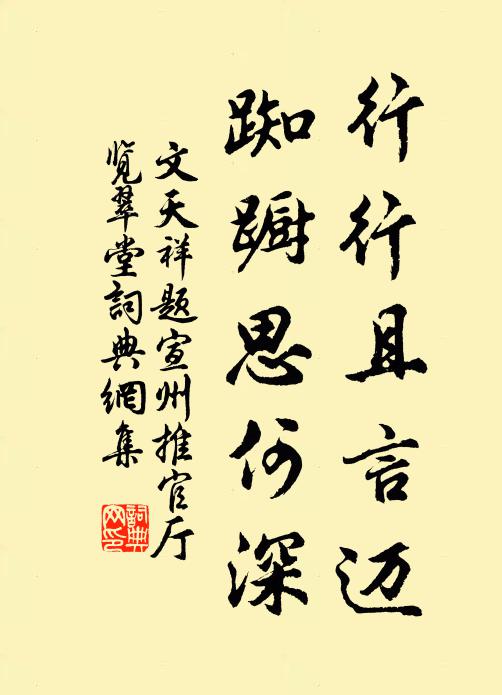 行行且言迈
踟蹰思何深
文天祥题宣州推官厅
览翠堂詞典網集
詞典网印